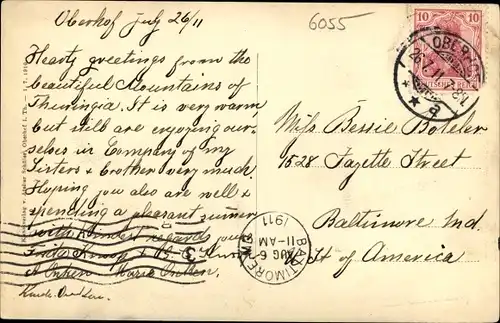 Oberhof July 26/11
6055
Hearty greetings from the
beautiful Mountains of
Thuringia. It is very warm,
but still are enjoying our-
selves in Company of my
Sisters & brother very much.
Hoping you also are well &
spending a pleasant summer
with kindest regards your
Miss Bessie Boteler
1528 Fayette Street
Baltimore Md.
of America
10 10
OBERHOF
26.7.11
BALTIMORE, MD.
AUG 6
11-AM
1911
3